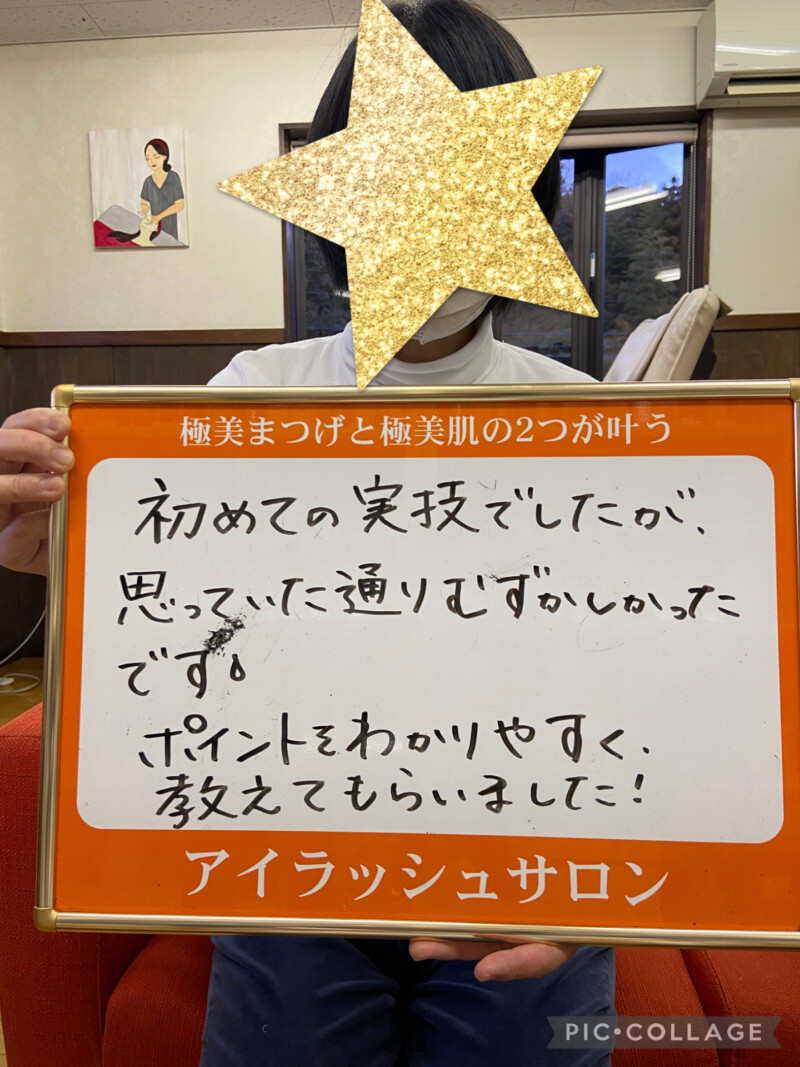 極美まつげと極美肌の2つが叶う
初めての実技でしたが、
思っていた通りむずかしかった
です。
ポイントをわかりやすく、
教えてもらいました!
アイラッシュサロン
PIC•COLLAGE